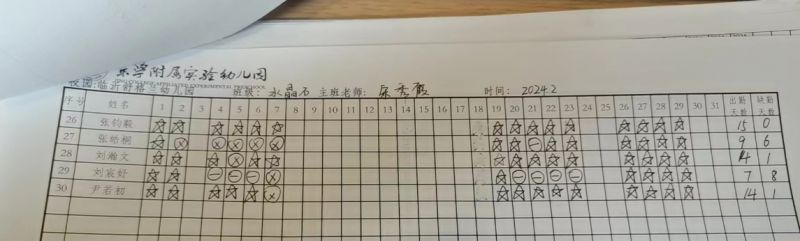 东学附属实验幼儿园
EXPERIMENTAL PRESCHOOL
校园:临沂舒格兰幼儿园 班级: 水晶石 主班老师: 时间: 2024.2
序号 姓名 1 2 3 4 5 6 7 8 9 10 11 12 13 14 15 16 17 18 19 20 21 22 23 24 25 26 27 28 29 30 31 出勤天数 缺勤天数
26 张钧毅 ☆ ☆ ☆ ☆ ☆ ☆ ☆ ☆ ☆ ☆ ☆ ☆ ☆ ☆ ☆ 15 0
27 张皓桐 ☆ ⓧ ⓧ ⓧ ⓧ ⓧ ☆ ☆ ⊖ ☆ ☆ ☆ ☆ ☆ ☆ 9 6
28 刘瀚文 ☆ ☆ ☆ ⓧ ☆ ☆ ☆ ☆ ☆ ☆ ☆ ☆ ☆ ☆ ☆ 14 1
29 刘宸好 ☆ ☆ ⊖ ⊖ ⊖ ⓧ ☆ ⊖ ⊖ ⊖ ⊖ ☆ ☆ ☆ ☆ 7 8
30 尹若初 ☆ ☆ ☆ ☆ ☆ ⓧ ☆ ☆ ☆ ☆ ☆ ☆ ☆ ☆ ☆ 14 1